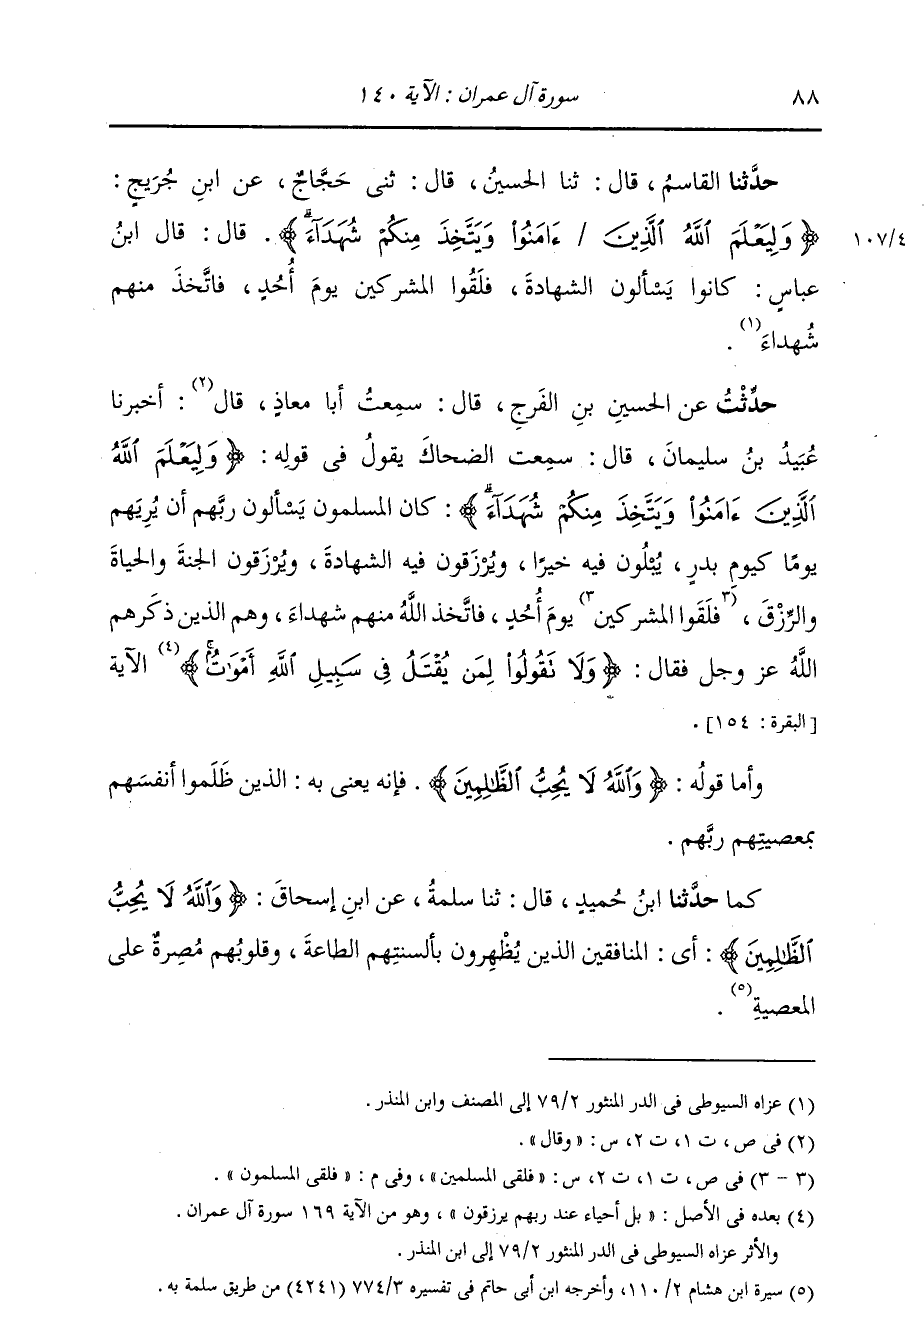 ٨٨ سورة آل عمران : الآية ١٤٠
حدَّثنا القاسمُ ، قال : ثنا الحسينُ ، قال : ثنى حَجَّاجٌ ، عن ابنِ جُرَيجٍ :
﴿ وَلِيَعْلَمَ ٱللَّهُ ٱلَّذِينَ / ءَامَنُوا۟ وَيَتَّخِذَ مِنكُمْ شُهَدَآءَۗ ﴾ . قال : قال ابنُ ١٠٧/٤
عباسٍ : كانوا يَسْألون الشهادةَ ، فلَقُوا المشركين يومَ أُحُدٍ ، فاتَّخذَ منهم
شُهداءَ(١) .
حدِّثْتُ عن الحسينِ بنِ الفَرجِ ، قال : سمِعتُ أبا معاذٍ ، قال(٢) : أخبرنا
عُبَيدُ بنُ سليمانَ ، قال : سمِعت الضحاكَ يقولُ فى قولِه : ﴿ وَلِيَعْلَمَ ٱللَّهُ
ٱلَّذِينَ ءَامَنُوا۟ وَيَتَّخِذَ مِنكُمْ شُهَدَآءَۗ ﴾ : كان المسلمون يَسْألون ربَّهم أن يُرِيَهم
يومًا كيومِ بدرٍ ، يُبْلُون فيه خيرًا ، ويُرْزَقون فيه الشهادةَ ، ويُرْزَقون الجنةَ والحياةَ
والرِّزْقَ ، (٣فلَقَوا المشركين٣) يومَ أُحُدٍ ، فاتَّخذ اللَّهُ منهم شهداءَ ، وهم الذين ذكَرهم
اللَّهُ عز وجل فقال : ﴿ وَلَا تَقُولُوا۟ لِمَن يُقْتَلُ فِى سَبِيلِ ٱللَّهِ أَمْوَٰتٌۢ ﴾(٤) الآية
[البقرة : ١٥٤] .
وأما قولُه : ﴿ وَٱللَّهُ لَا يُحِبُّ ٱلظَّٰلِمِينَ ﴾ . فإنه يعنى به : الذين ظَلَموا أنفسَهم
بمعصيتِهم ربَّهم .
كما حدَّثنا ابنُ حُميدٍ ، قال : ثنا سلمةُ ، عن ابنِ إسحاقَ : ﴿ وَٱللَّهُ لَا يُحِبُّ
ٱلظَّٰلِمِينَ ﴾ : أى : المنافقين الذين يُظْهِرون بألسنتِهم الطاعةَ ، وقلوبُهم مُصِرةٌ على
المعصيةِ(٥) .
(١) عزاه السيوطى فى الدر المنثور ٧٩/٢ إلى المصنف وابن المنذر .
(٢) فى ص ، ت ١، ت ٢، س : « وقال » .
(٣ - ٣) فى ص ، ت ١، ت ٢، س : « فلقى المسلمين » ، وفى م : « فلقى المسلمون » .
(٤) بعده فى الأصل : « بل أحياء عند ربهم يرزقون » ، وهو من الآية ١٦٩ سورة آل عمران .
والأثر عزاه السيوطى فى الدر المنثور ٧٩/٢ إلى ابن المنذر .
(٥) سيرة ابن هشام ١١٠/٢، وأخرجه ابن أبى حاتم فى تفسيره ٧٧٤/٣ (٤٢٤١) من طريق سلمة به .